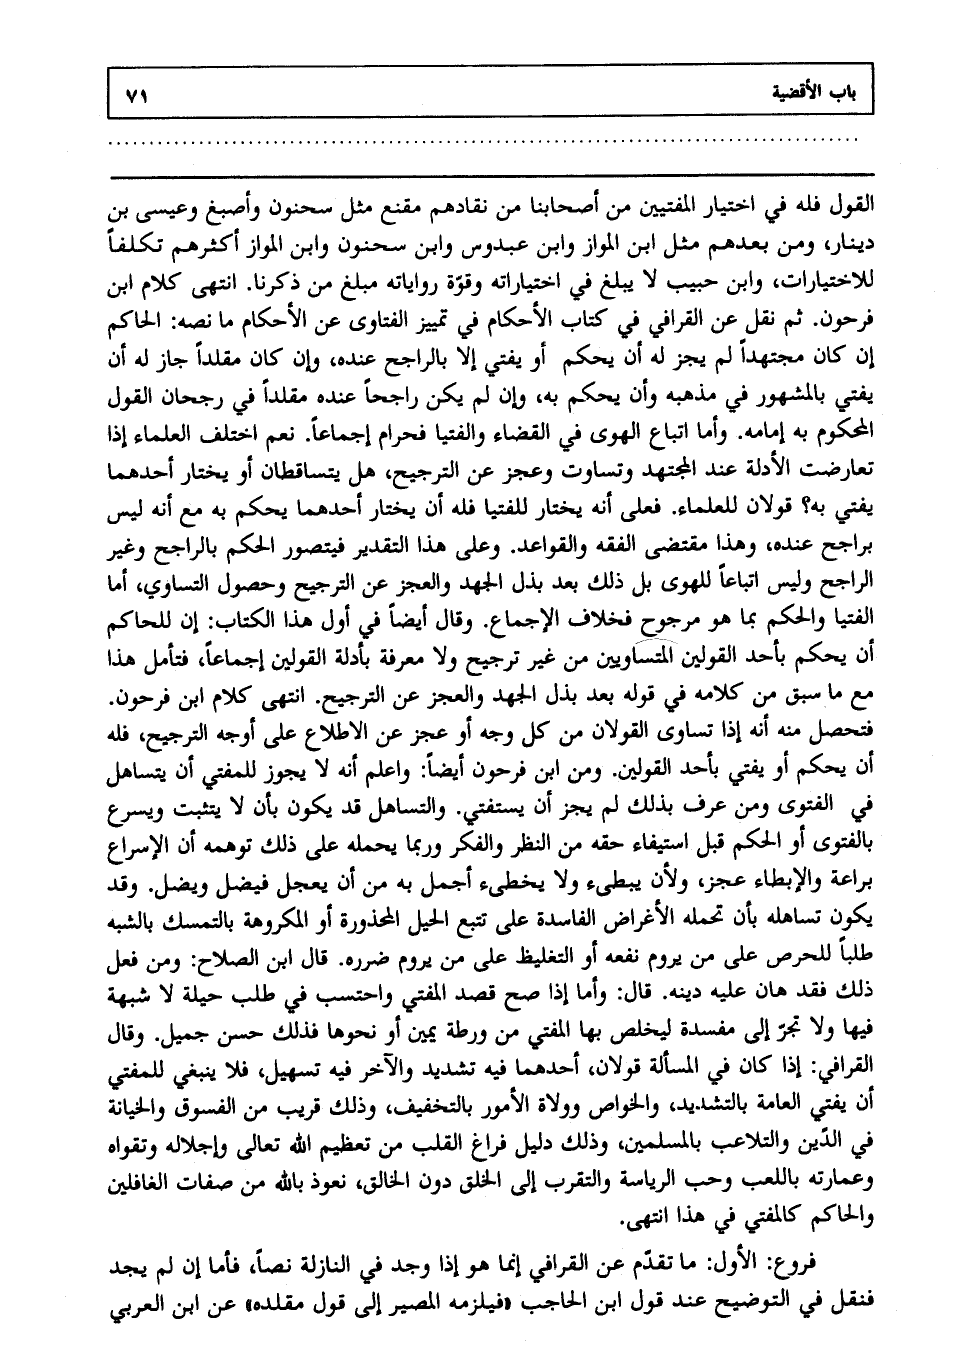 باب الأقضية ٧١
القول فله في اختيار المفتيين من أصحابنا من نقادهم مقنع مثل سحنون وأصبغ وعيسى بن
دينار، ومن بعدهم مثل ابن المواز وابن عبدوس وابن سحنون وابن المواز أكثرهم تكلفاً
للاختيارات، وابن حبيب لا يبلغ في اختياراته وقوّة رواياته مبلغ من ذكرنا. انتهى كلام ابن
فرحون. ثم نقل عن القرافي في كتاب الأحكام في تمييز الفتاوى عن الأحكام ما نصه: الحاكم
إن كان مجتهداً لم يجز له أن يحكم أو يفتي إلا بالراجح عنده، وإن كان مقلداً جاز له أن
يفتي بالمشهور في مذهبه وأن يحكم به، وإن لم يكن راجحاً عنده مقلداً في رجحان القول
المحكوم به إمامه. وأما اتباع الهوى في القضاء والفتيا فحرام إجماعاً. نعم اختلف العلماء إذا
تعارضت الأدلة عند المجتهد وتساوت وعجز عن الترجيح، هل يتساقطان أو يختار أحدهما
يفتي به؟ قولان للعلماء. فعلى أنه يختار للفتيا فله أن يختار أحدهما يحكم به مع أنه ليس
براجح عنده، وهذا مقتضى الفقه والقواعد. وعلى هذا التقدير فيتصور الحكم بالراجح وغير
الراجح وليس اتباعاً للهوى بل ذلك بعد بذل الجهد والعجز عن الترجيح وحصول التساوي، أما
الفتيا والحكم بما هو مرجوح فخلاف الإجماع. وقال أيضاً في أول هذا الكتاب: إن للحاكم
أن يحكم بأحد القولين المتساويين من غير ترجيح ولا معرفة بأدلة القولين إجماعاً، فتأمل هذا
مع ما سبق من كلامه في قوله بعد بذل الجهد والعجز عن الترجيح. انتهى كلام ابن فرحون.
فتحصل منه أنه إذا تساوى القولان من كل وجه أو عجز عن الاطلاع على أوجه الترجيح، فله
أن يحكم أو يفتي بأحد القولين. ومن ابن فرحون أيضاً: واعلم أنه لا يجوز للمفتي أن يتساهل
في الفتوى ومن عرف بذلك لم يجز أن يستفتي. والتساهل قد يكون بأن لا يتثبت ويسرع
بالفتوى أو الحكم قبل استيفاء حقه من النظر والفكر وربما يحمله على ذلك توهمه أن الإسراع
براعة والإبطاء عجز، ولأن يبطىء ولا يخطىء أجمل به من أن يعجل فيضل ويضل. وقد
يكون تساهله بأن تحمله الأغراض الفاسدة على تتبع الحيل المحذورة أو المكروهة بالتمسك بالشبه
طلباً للحرص على من يروم نفعه أو التغليظ على من يروم ضرره. قال ابن الصلاح: ومن فعل
ذلك فقد هان عليه دينه. قال: وأما إذا صح قصد المفتي واحتسب في طلب حيلة لا شبهة
فيها ولا تجرّ إلى مفسدة ليخلص بها المفتي من ورطة يمين أو نحوها فذلك حسن جميل. وقال
القرافي: إذا كان في المسألة قولان، أحدهما فيه تشديد والآخر فيه تسهيل، فلا ينبغي للمفتي
أن يفتي العامة بالتشديد، والخواص وولاة الأمور بالتخفيف، وذلك قريب من الفسوق والخيانة
في الدّين والتلاعب بالمسلمين، وذلك دليل فراغ القلب من تعظيم الله تعالى وإجلاله وتقواه
وعمارته باللعب وحب الرياسة والتقرب إلى الخلق دون الخالق، نعوذ بالله من صفات الغافلين
والحاكم كالمفتي في هذا انتهى.
فروع: الأول: ما تقدّم عن القرافي إنما هو إذا وجد في النازلة نصاً، فأما إن لم يجد
فنقل في التوضيح عند قول ابن الحاجب «فيلزمه المصير إلى قول مقلده» عن ابن العربي